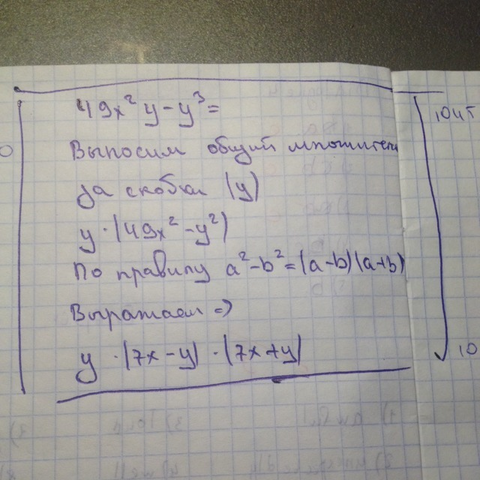 49x² y - y³ =
Выносим общий множитель
за скобки (y)
y · (49x² - y²)
По правилу a² - b² = (a-b)(a+b)
Выражаем =>
y · (7x - y) · (7x + y)
10